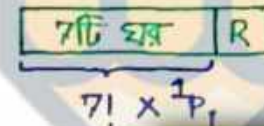 7টি ঘর R
7! × ¹P₁